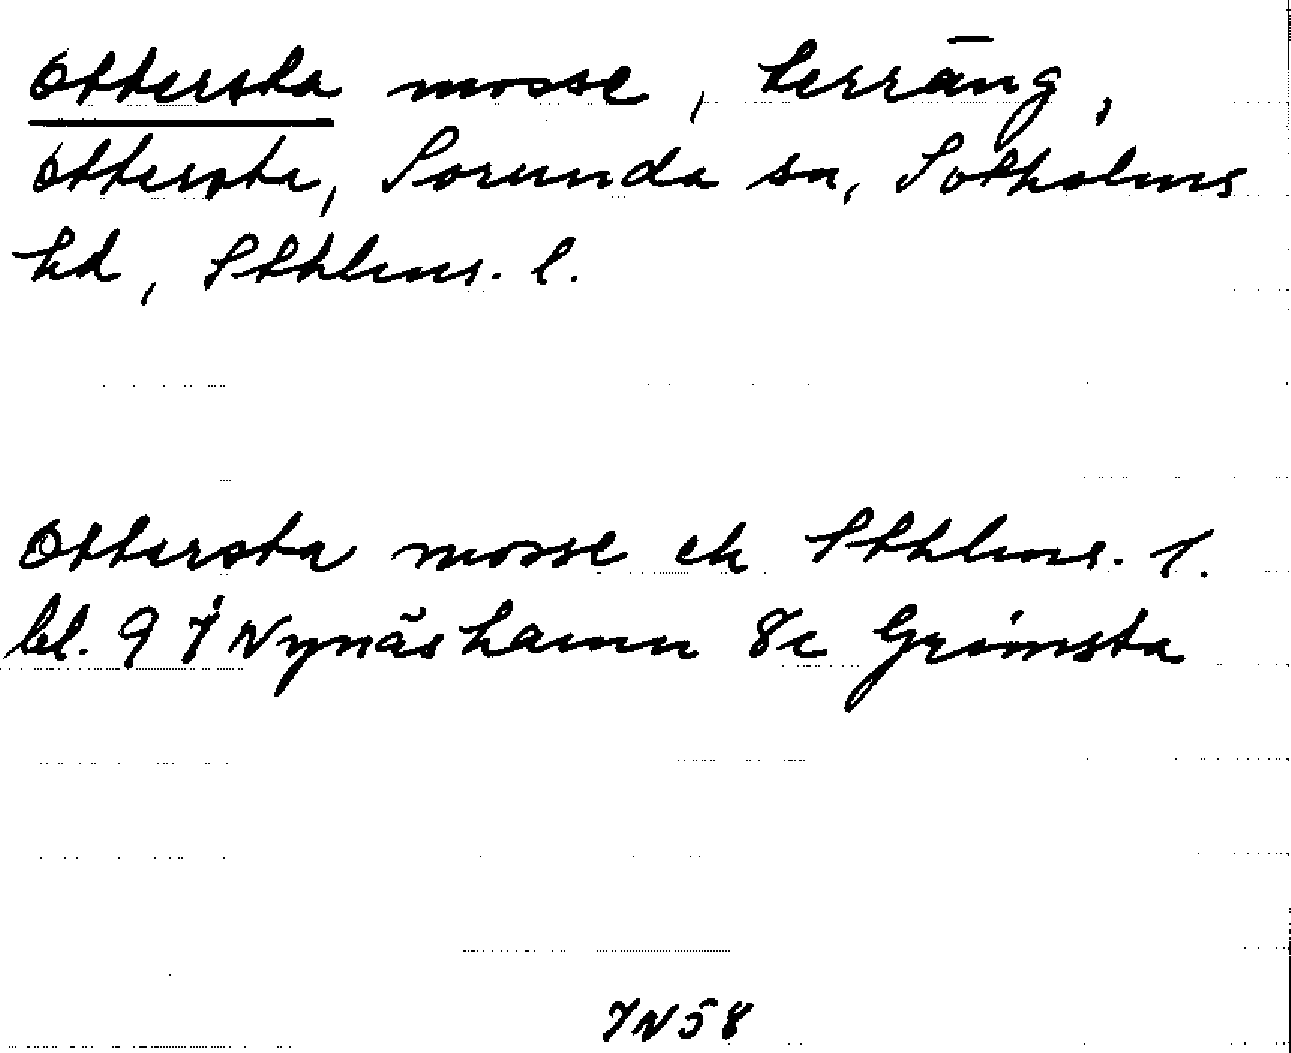 Ottersta mosse, terräng,
Ottersta, Sorunda sn, Sotholms
hd, Sthlms. l.
Ottersta mosse ek Sthlms. l.
bl. 9 I Nynäshamn 8c Grimsta
IN58